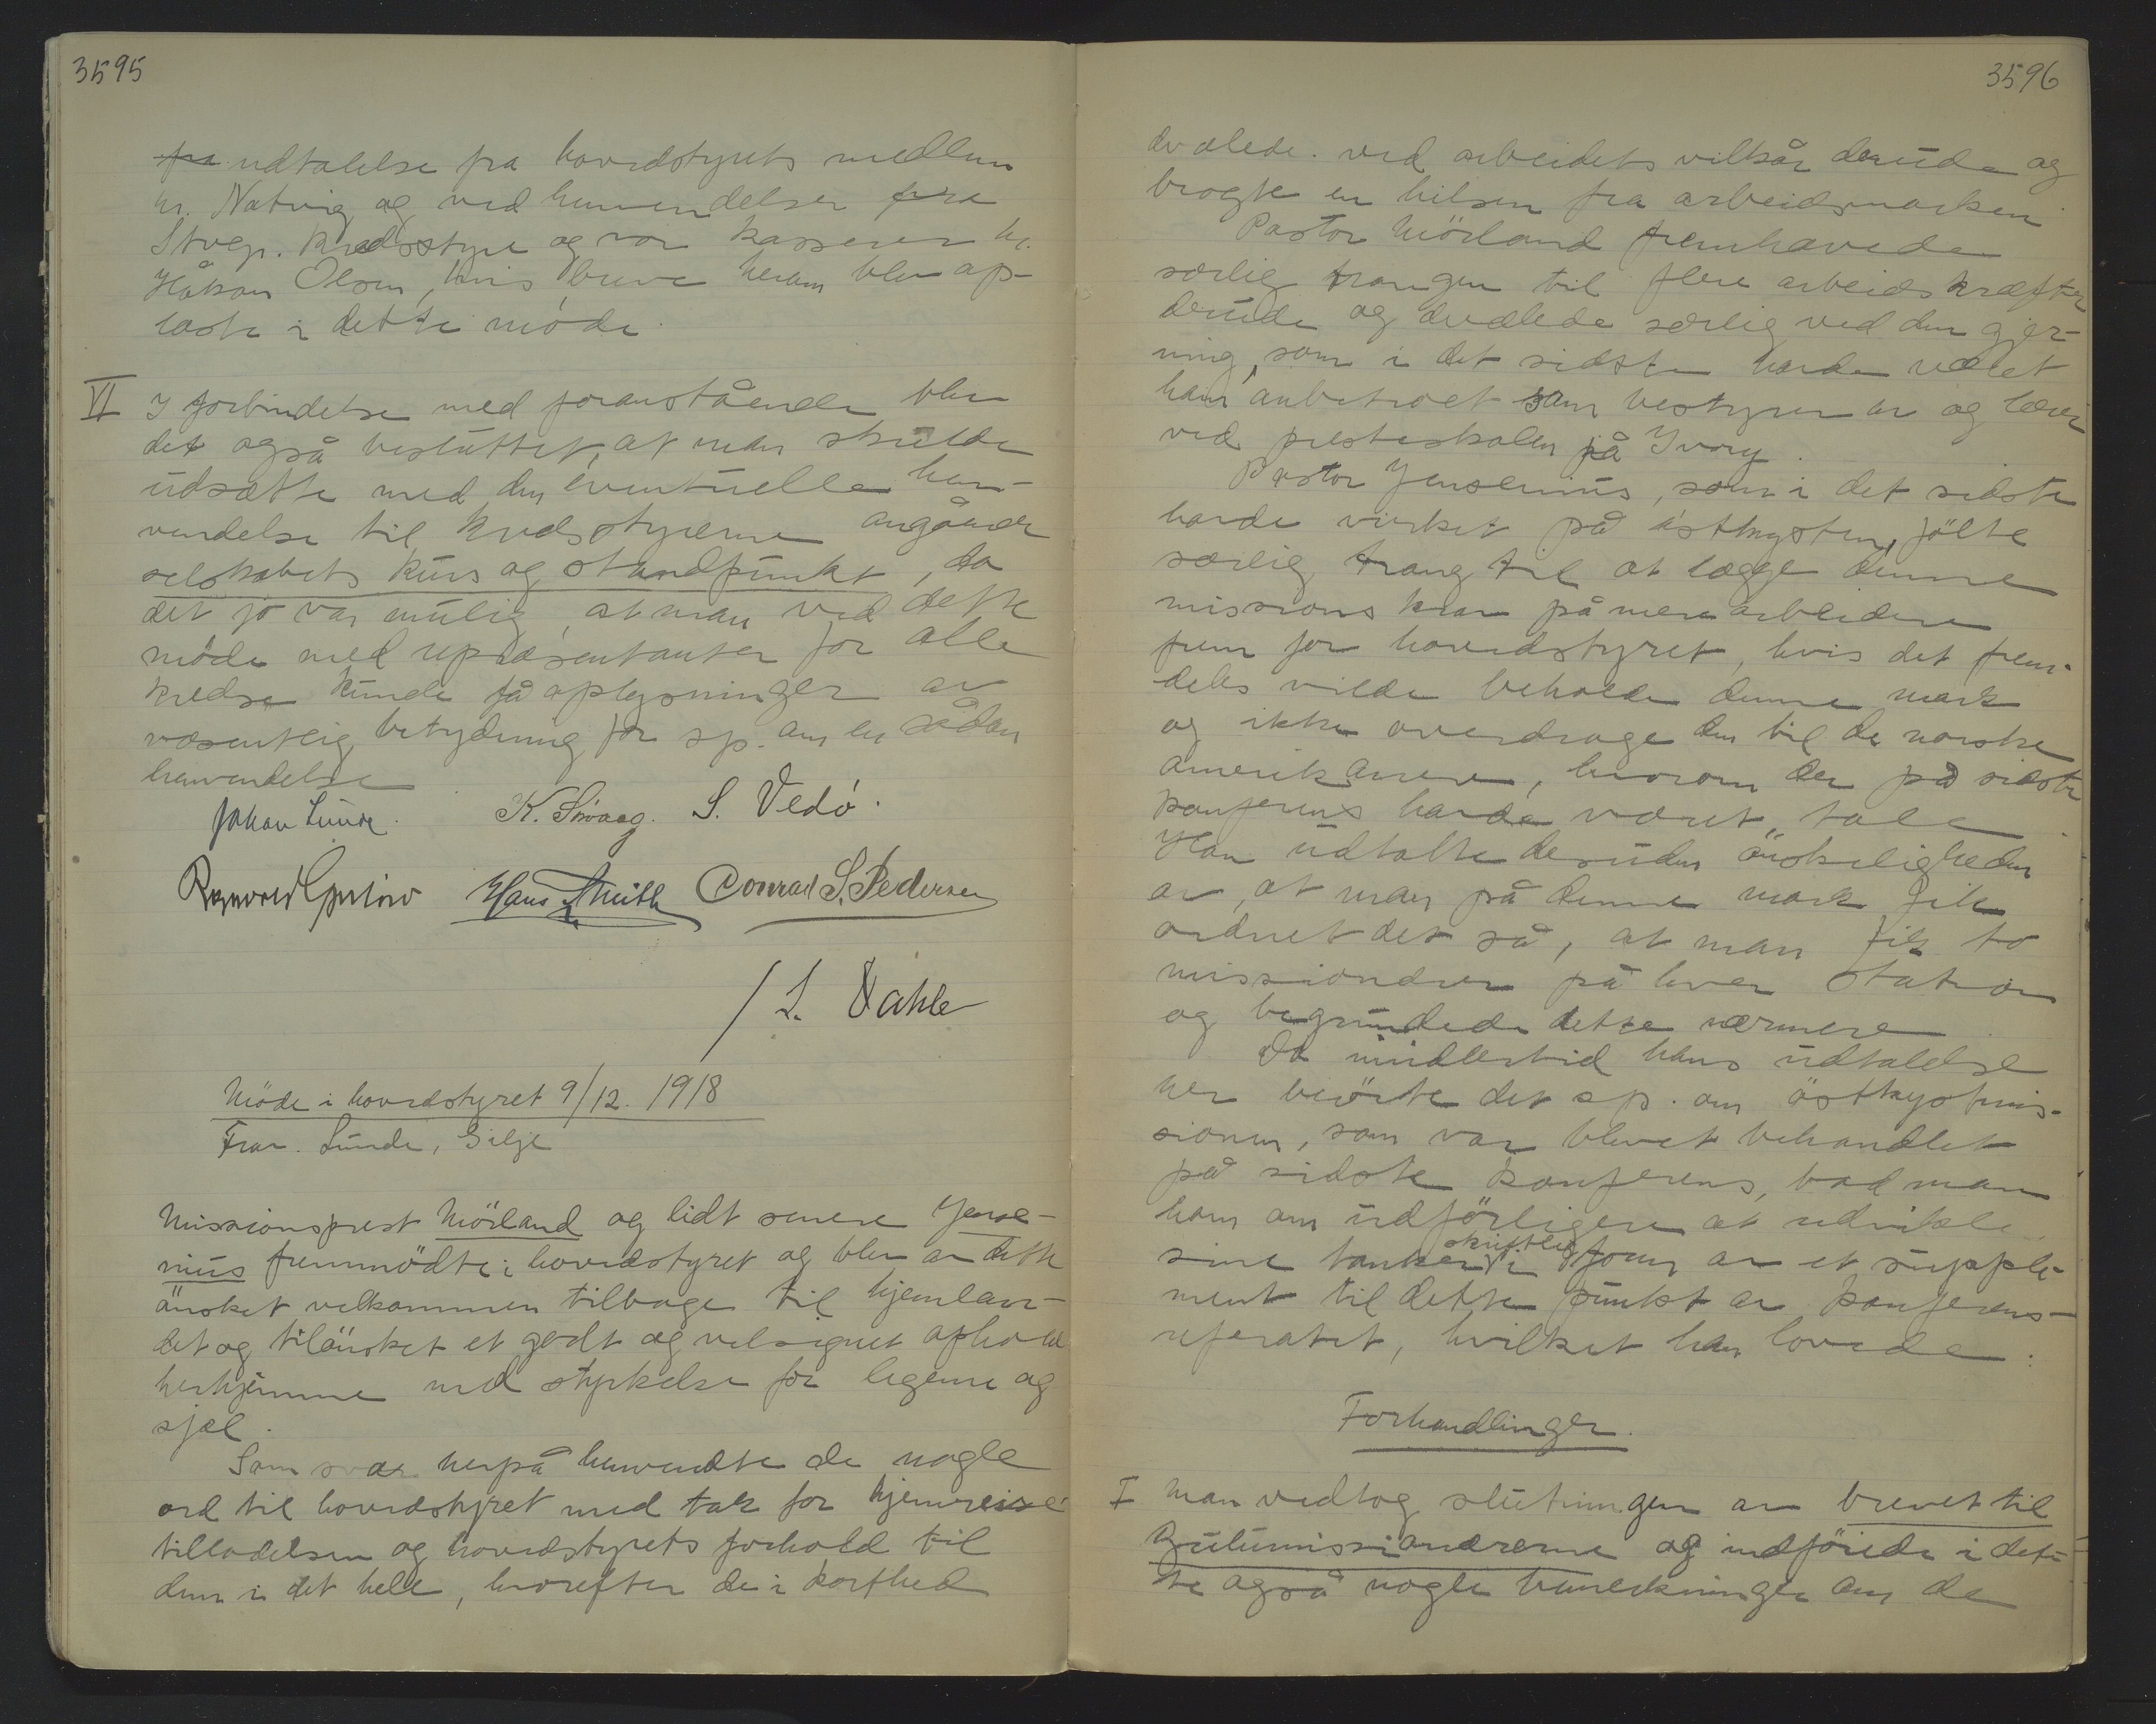 3595
fra udtalelse fra hovedstyrets medlem
hr. Natvig og ved henvendelser fra
Stvgr. kredsstyre og vor kasserer hr.
Håkon Olsen, hvis breve herom blev op-
læste i dette möde.
VI I forbindelse med foranstående blev
det også besluttet, at man skulde
udsætte med den eventuelle hen-
vendelse til kredsstyrerne angående
selskabets kurs og standpunkt, da
det jo var mulig, at man ved dette
möde med repræsentanter for alle
kredse kunde få oplysninger av
væsentlig betydning for sp. om en sådan
henvendelse
Johan Lunde. K. Svaag. S. Vedö.
Ragnvald Gjerlöw Hans Smith Conrad S. Pedersen
/ L. Dahle
Möde i hovedstyret 9/12. 1918
Frav. Lunde, Gilje
Missionsprest Mörland og lidt senere Jense-
nius fremmödte i hovedstyret og blev av dette
önsket velkommen tilbage til hjemlan-
det og tilönsket et godt og velsignet ophold
herhjemme med styrkelse for legeme og
sjæl.
Som svar herpå henvendte de nogle
ord til hovedstyret med tak for hjemreise-
tilladelsen og hovedstyrets forhold til
dem i det hele, hvorefter de i korthed
3596
dvælede ved arbeidets vilkår derude og
bragte en hilsen fra arbeidsmarken.
Pastor Mörland fremhævede
særlig trangen til flere arbeidskræfter
derude og dvælede særlig ved den gjer-
ning, som i det sidste havde været
ham anbetroet som bestyrer av og lærer
ved presteskolen på Ivory.
Pastor Jensenius, som i det sidste
havde virket på östkysten, fölte
særlig trang til at lægge denne
missions krav på mere arbeidere
frem for hovedstyret, hvis det frem-
deles vilde beholde denne mark
og ikke overdrage den til de norske
amerikanere, hvorom der på sidste
konferens havde været tale.
Han udtalte desuden önskeligheden
av, at man på denne mark fik
ordnet det så, at man fik to
missionærer på hver station
og begrundede dette nærmere.
Da imidlertid hans udtalelse
her berörte det sp. om östkystmis-
sionen, som var blevet behandlet
på sidste konferens, bad man
ham om udförligere at udvikle
sine tanker i skriftlig form av et supple-
ment til dette punkt av konferens-
referatet, hvilket han lovede.
Forhandlinger.
I Man vedtog slutningen av brevet til
Zulumissionærerne og indförtede i det-
te også nogle bemerkninger om de